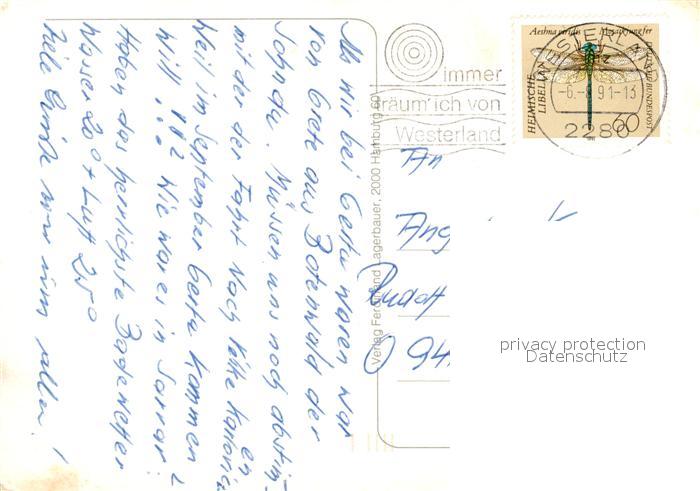 Als wir bei Gerta waren war
von Grete aus Botenwald der
Sohn da. Müssen uns noch abstim-
mit der der Fahrt nach Velke Karlovic
en
Weil im September Gerta kommen
will. ?
Wie war es in
Haben das herrlichste Badewetter
Wasser 20° + Luft 25°
viele Grüße von uns allen!
immer
träum' ich von
Westerland
Aeshna viridis Mosaikjungfer
HEIMISCHE
LIBELLEN
DEUTSCHE BUNDESPOST
60
-6.-8.91-13
2280
Verlag Ferdinand Lagerbauer, 2000 Hamburg
An
Ang
Rudolf
O 94
privacy protection
Datenschutz